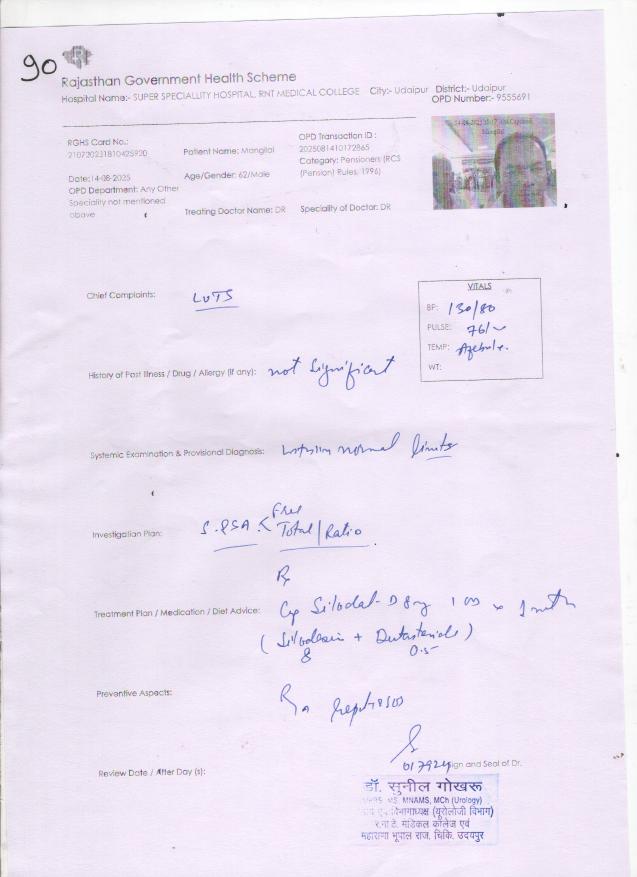 90
Rajasthan Government Health Scheme
Hospital Name:- SUPER SPECIALLITY HOSPITAL, RNT MEDICAL COLLEGE City:- Udaipur District:- Udaipur
OPD Number:- 9555691
RGHS Card No.:
210720231810425920
Patient Name: Mangilal
OPD Transaction ID :
2025081410172865
Category: Pensioners (RCS
(Pension) Rules, 1996)
Date:14-08-2025
Age/Gender: 62/Male
OPD Department: Any Other
Speciality not mentioned
above
Treating Doctor Name: DR
Speciality of Doctor: DR
Chief Complaints: LUTS
VITALS
BP: 130/80
PULSE: 76/
TEMP: Afebrile.
WT:
History of Past Illness / Drug / Allergy (if any): not Significant
Systemic Examination & Provisional Diagnosis: within normal limits
Investigation Plan: S.PSA < Free
Total/Ratio
Rx
Treatment Plan / Medication / Diet Advice: Cap Silodal-D 8mg 1 OD x 1 month
(Silodosin + Dutasteride)
8 0.5
Preventive Aspects:
Review Date / After Day (s):
017924
Sign and Seal of Dr.
डॉ. सुनील गोखरू
MBBS, MS, MNAMS, MCh (Urology)
विभागाध्यक्ष (यूरोलोजी विभाग)
र.ना.टे. मेडिकल कॉलेज एवं
महाराणा भूपाल राज. चिकि. उदयपुर